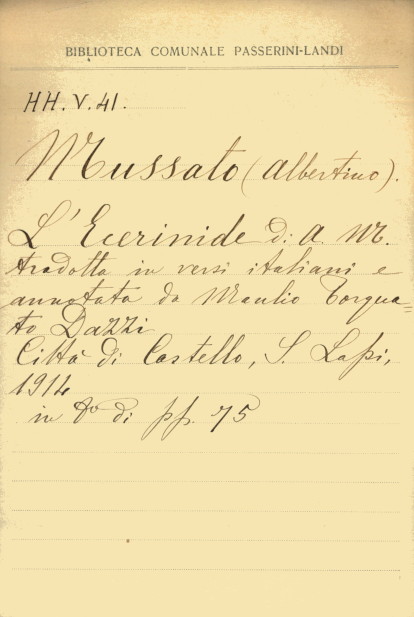 BIBLIOTECA COMUNALE PASSERINI-LANDI
HH. V. 41.
Mussato (Albertino).
L'Ecerinide di A. M.
tradotta in versi italiani e
annotata da Manlio Torqua=
to Dazzi
Città di Castello, S. Lapi,
1914
in 8° di pp. 75